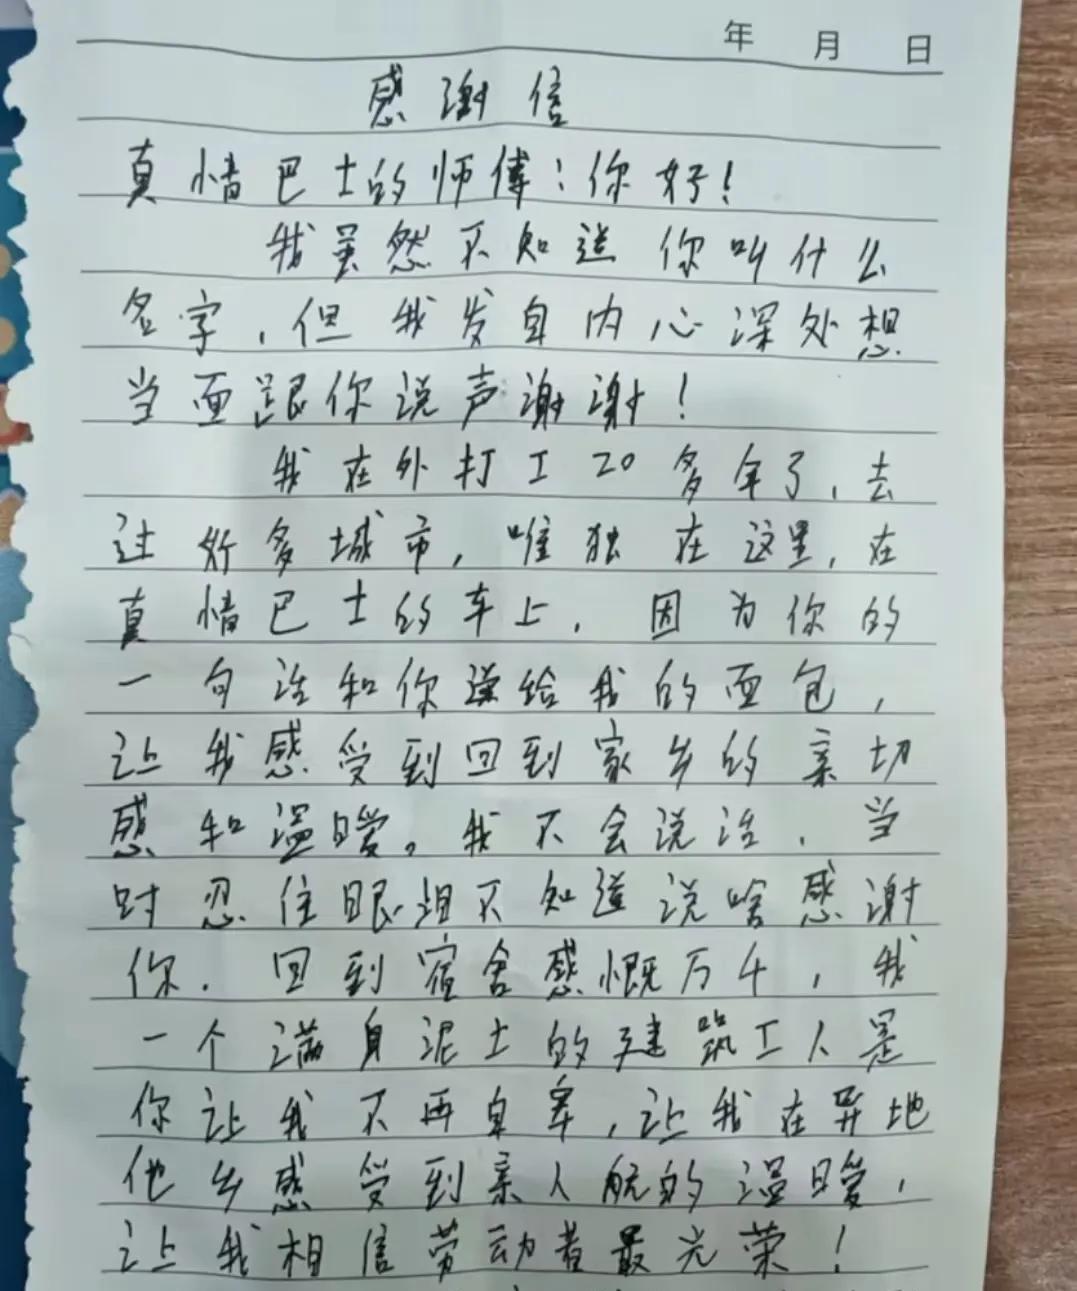 年 月 日
感谢信
真情巴士的师傅:你好!
我虽然不知道你叫什么
名字,但我发自内心深处想
当面跟你说声谢谢!
我在外打工20多年了,去
过好多城市,唯独在这里,在
真情巴士的车上,因为你的
一句话和你递给我的面包,
让我感受到回到家乡的亲切
感和温暖。我不会说话,当
时忍住眼泪不知道说啥感谢
你.回到宿舍感慨万千,我
一个满身泥土的建筑工人是
你让我不再自卑,让我在异地
他乡感受到亲人般的温暖,
让我相信劳动者最光荣!